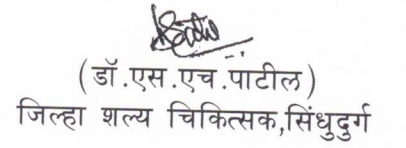 (डॉ.एस.एच.पाटील)
जिल्हा शल्य चिकित्सक,सिंधुदुर्ग